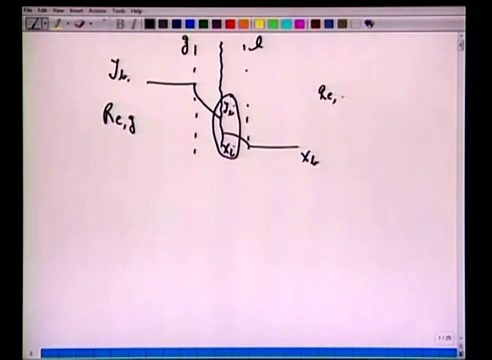 File Edit View Insert Actions Tools Help
g l
y_b
y_i
Re,
Re,g
x_i
x_b
1 / 25